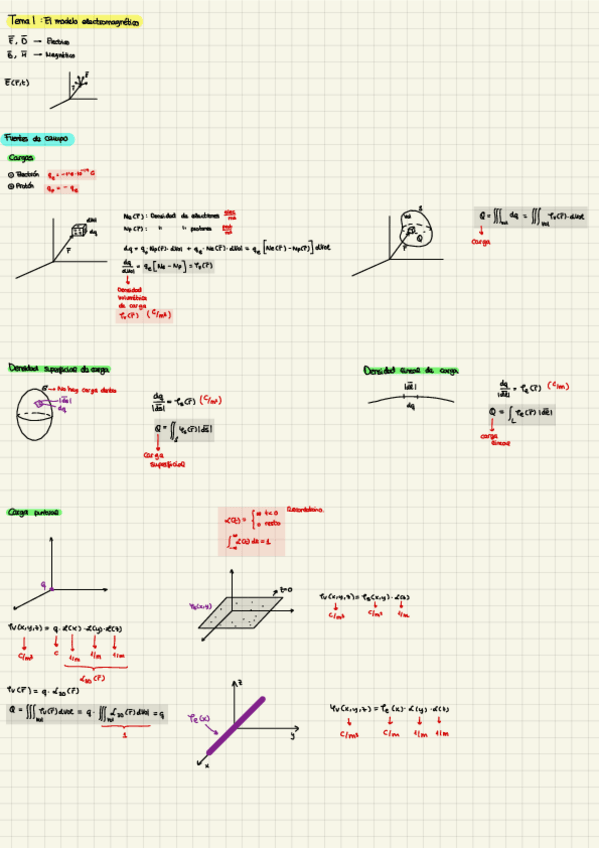 Tema 1: El modelo electromagnético
E̅, D̅ → Electrico
B̅, H̅ → Magnético
E̅(r̅,t)
r̅
Fuentes de campo
Cargas
Electrón
Protón q_p = - q_e
Ne(r̅): Densidad de electrones
Np(r̅): " " protones
dVol
dq
r̅
dq = q_p·Np(r̅)·dVol + q_e·Ne(r̅)·dVol = q_e [Ne(r̅) - Np(r̅)] dVol
dq/dVol = q_e [Ne - Np] = ρ_v(r̅)
Densidad
volumétrica
de carga
ρ_v(r̅) (C/m³)
Q = ∭_Vol dq = ∭_Vol ρ_v(r̅)·dVol
carga
Densidad superficial de carga
No hay carga dentro
|d̅s̅|
dq
dq/|d̅s̅| = ρ_s(r̅) (C/m²)
Q = ∬_S ρ_s(r̅)|d̅s̅|
carga
superficial
Densidad lineal de carga
|d̅l̅|
dq
dq/|d̅l̅| = ρ_e(r̅) (C/m)
Q = ∫_L ρ_e(r̅)|d̅l̅|
carga
lineal
Carga puntual
q
δ(x) = { ∞ si x=0
0 resto
Recordatorio.
∫ δ(x) dx = 1
ρ_v(x,y,z) = q · δ(x) · δ(y) · δ(z)
C/m³ C 1/m 1/m 1/m
δ_3D(r̅)
ρ_v(r̅) = q · δ_3D(r̅)
Q = ∭_Vol ρ_v(r̅) dVol = q · ∭_Vol δ_3D(r̅) dVol = q
1
ρ_s(x,y)
z=0
ρ_v(x,y,z) = ρ_s(x,y) · δ(z)
C/m³ C/m² 1/m
z
ρ_e(x)
y
x
ρ_v(x,y,z) = ρ_e(x) · δ(y) · δ(z)
C/m³ C/m 1/m 1/m